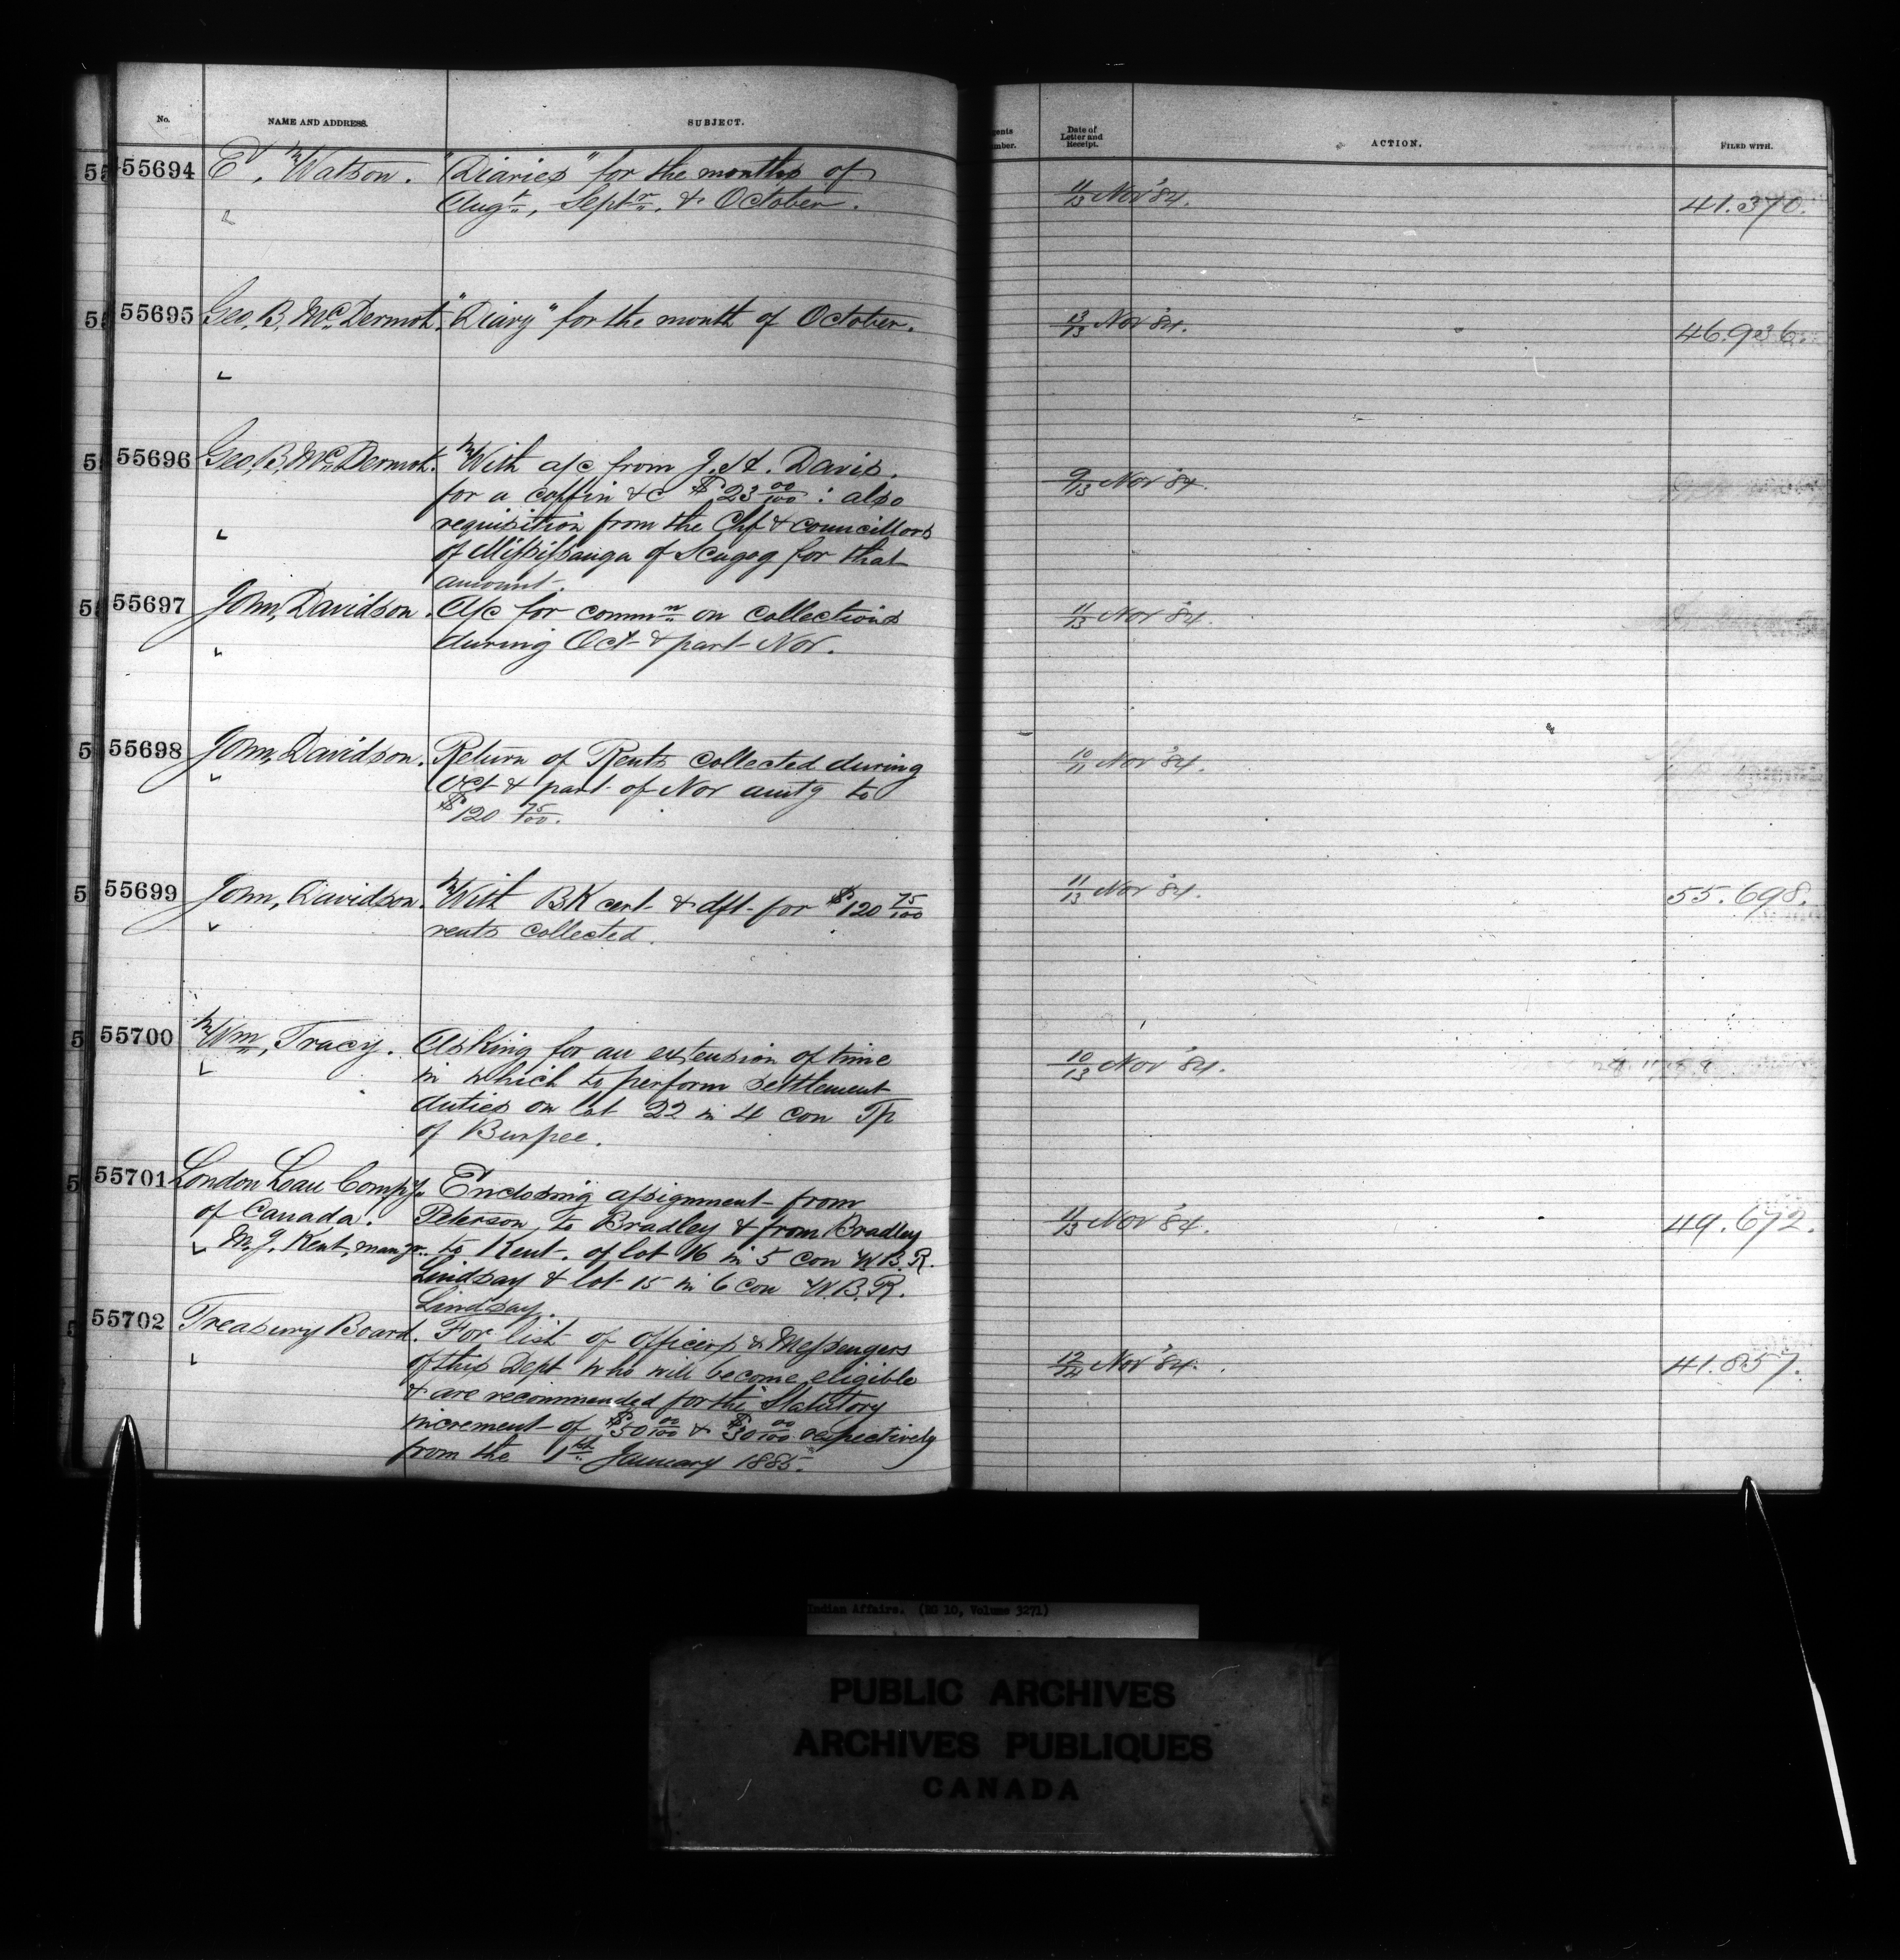 No. NAME AND ADDRESS. SUBJECT.
55694 Ed. Watson. "Diaries" for the months of
Augt., Septr. & October.
55695 Geo. B. McDermot. "Diary" for the month of October.
55696 Geo. B. McDermot. With a/c from J. H. Davis.
for a coffin &c $23 00/100 : also
requisition from the Chf & councillors
of Mississauga of Scugog for that
amount.
55697 John, Davidson. A/c for commn on collections
during Oct & part Nov.
55698 John, Davidson. Return of Rents collected during
Oct & part of Nov amtg to
$120 75/100.
55699 John, Davidson. With BK cert & dft for $120 75/100
rents collected.
55700 Wm, Tracy. Asking for an extension of time
in which to perform settlement
duties on lot 22 in 4 con Tp
of Burpee.
55701 London Loan Compy. Enclosing assignment from
of Canada. Peterson, to Bradley & from Bradley
M. J. Kent, mangr. to Kent. of lot 16 in 5 con W.B.R.
Lindsay & lot 15 in 6 con W.B.R.
Lindsay.
55702 Treasury Board. For list of officers & Messengers
of this Dept who will become eligible
& are recommended for the Statutory
increment of $50 00/100 & $30 00/100 respectively
from the 1st January 1885.
Date of
Letter and
Receipt.
ACTION. FILED WITH.
11/13 Nov '84. 41.370.
13/13 Nov '84. 46.936.
9/13 Nov '84.
11/13 Nov '84.
10/11 Nov '84.
11/13 Nov '84. 55.698.
10/13 Nov '84.
11/13 Nov '84. 49.672.
12/14 Nov '84. 41.857.
Indian Affairs. (RG 10, Volume 3271)
PUBLIC ARCHIVES
ARCHIVES PUBLIQUES
CANADA